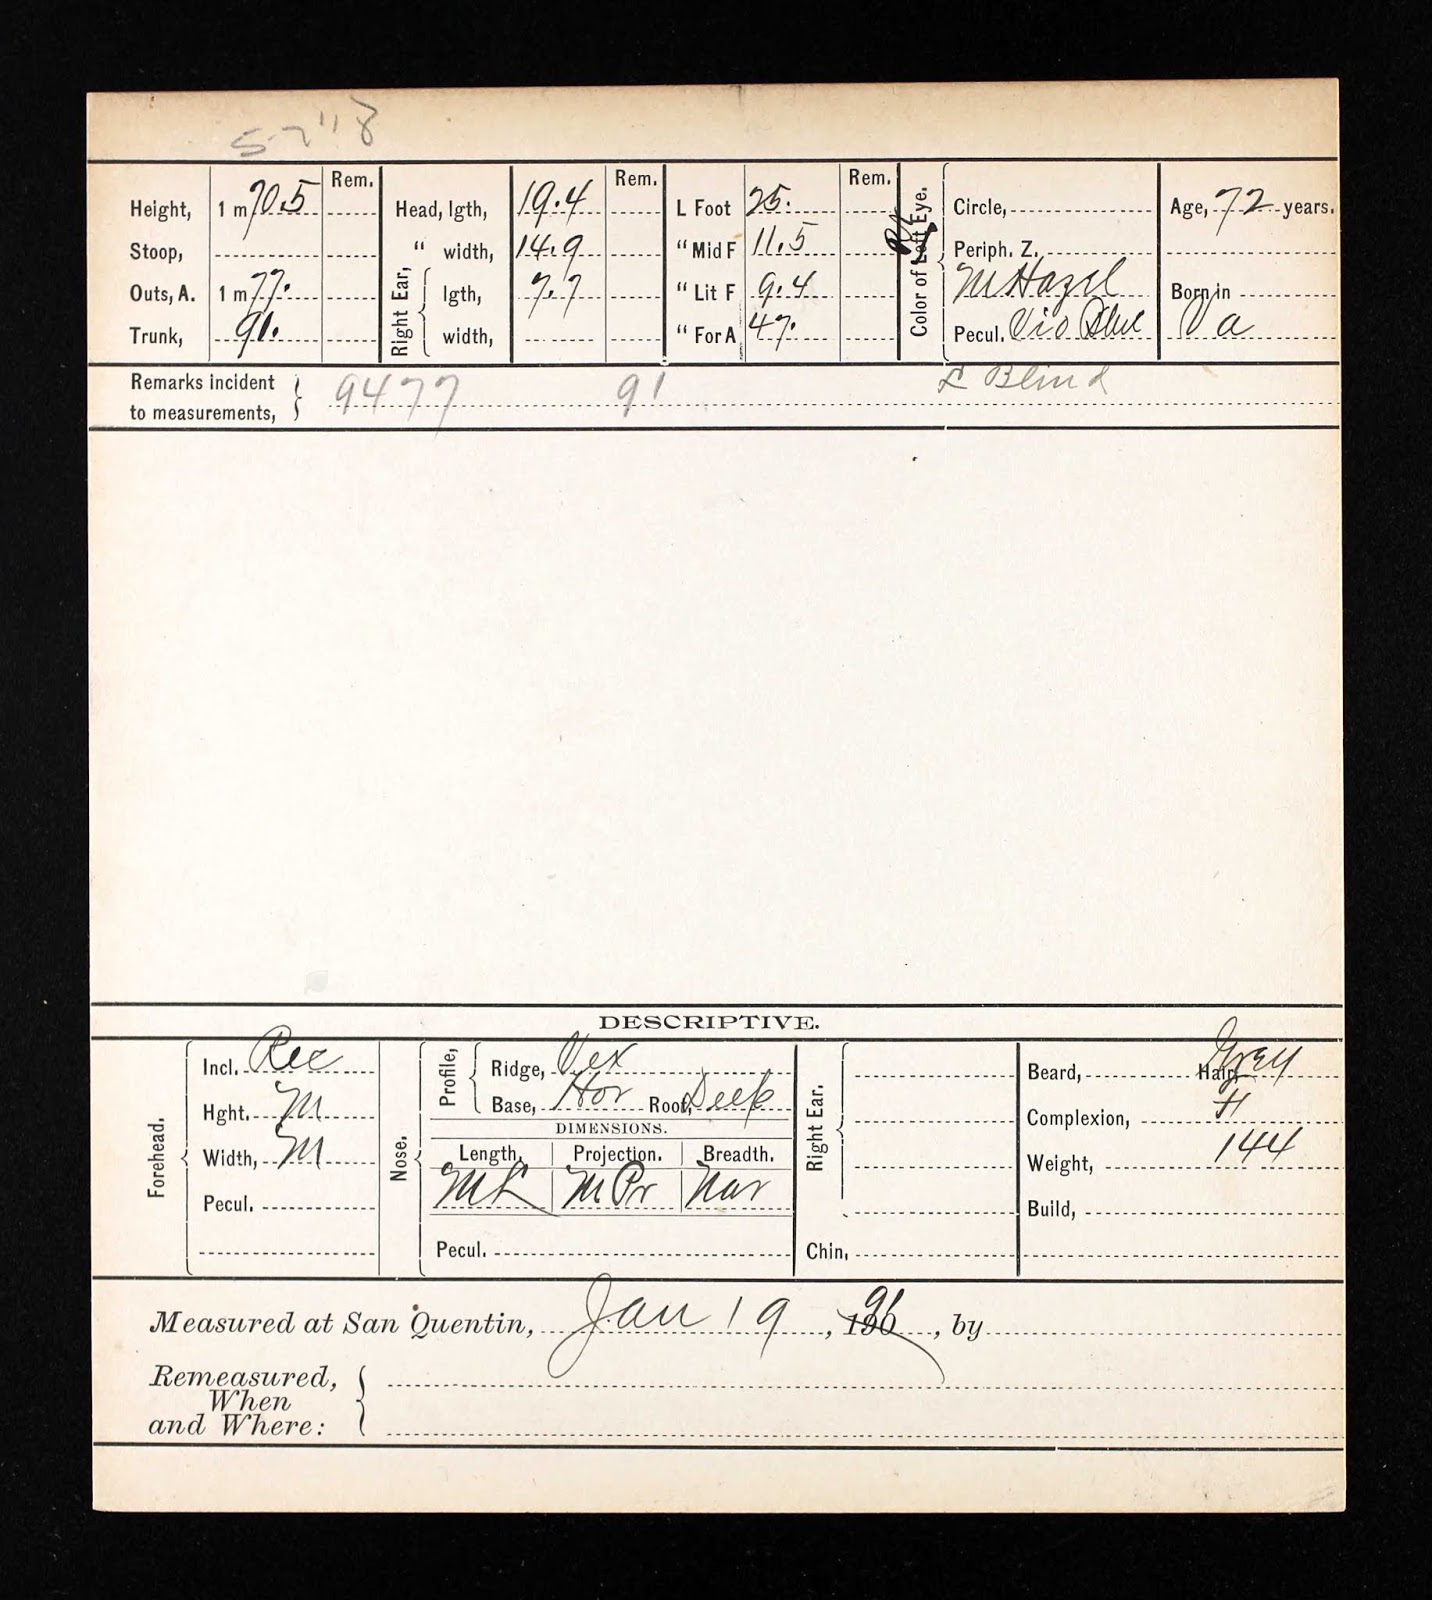 5-7"8
Rem. Rem. Rem.
Height, 1 m 70.5 Head, lgth, 19.4 L Foot 25. Circle, Age, 72 years.
Stoop, " width, 14.9 "Mid F 11.5 Color of Left Eye. Rt Periph. Z,
Outs, A. 1 m 77. Right Ear, lgth, 7.7 "Lit F 9.4 M Hazel Born in
Trunk, 91. width, "For A 47. Pecul. Vio Blue Va
Remarks incident
to measurements, 9477 91 L Blind
DESCRIPTIVE.
Forehead. Incl. Rec Nose. Profile, Ridge, Vex Right Ear. Beard, Hair, Grey
Hght. M Base, Hor Root, Deep Complexion, F
DIMENSIONS.
Width, M Length, Projection. Breadth. Weight, 144
Pecul. M L M Pr Nar Build,
Pecul. Chin,
Measured at San Quentin, Jan 19, 190 96, by
Remeasured,
When
and Where: